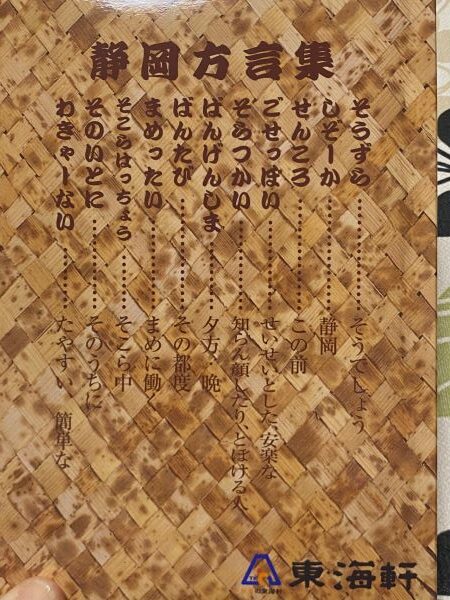 静岡方言集
そうずら…………そうでしょう
しぞーか…………静岡
せんころ…………この前
ごせっぽい…………せいせいとした、安楽な
そらつかい…………知らん顔したり、とぼける人
ばんげんしま…………夕方、晩
ばんたび…………その都度
まめったい…………まめに働く
そこらはっちょう…………そこら中
そのいとに…………そのうちに
わきゃーない…………たやすい 簡単な
東海軒